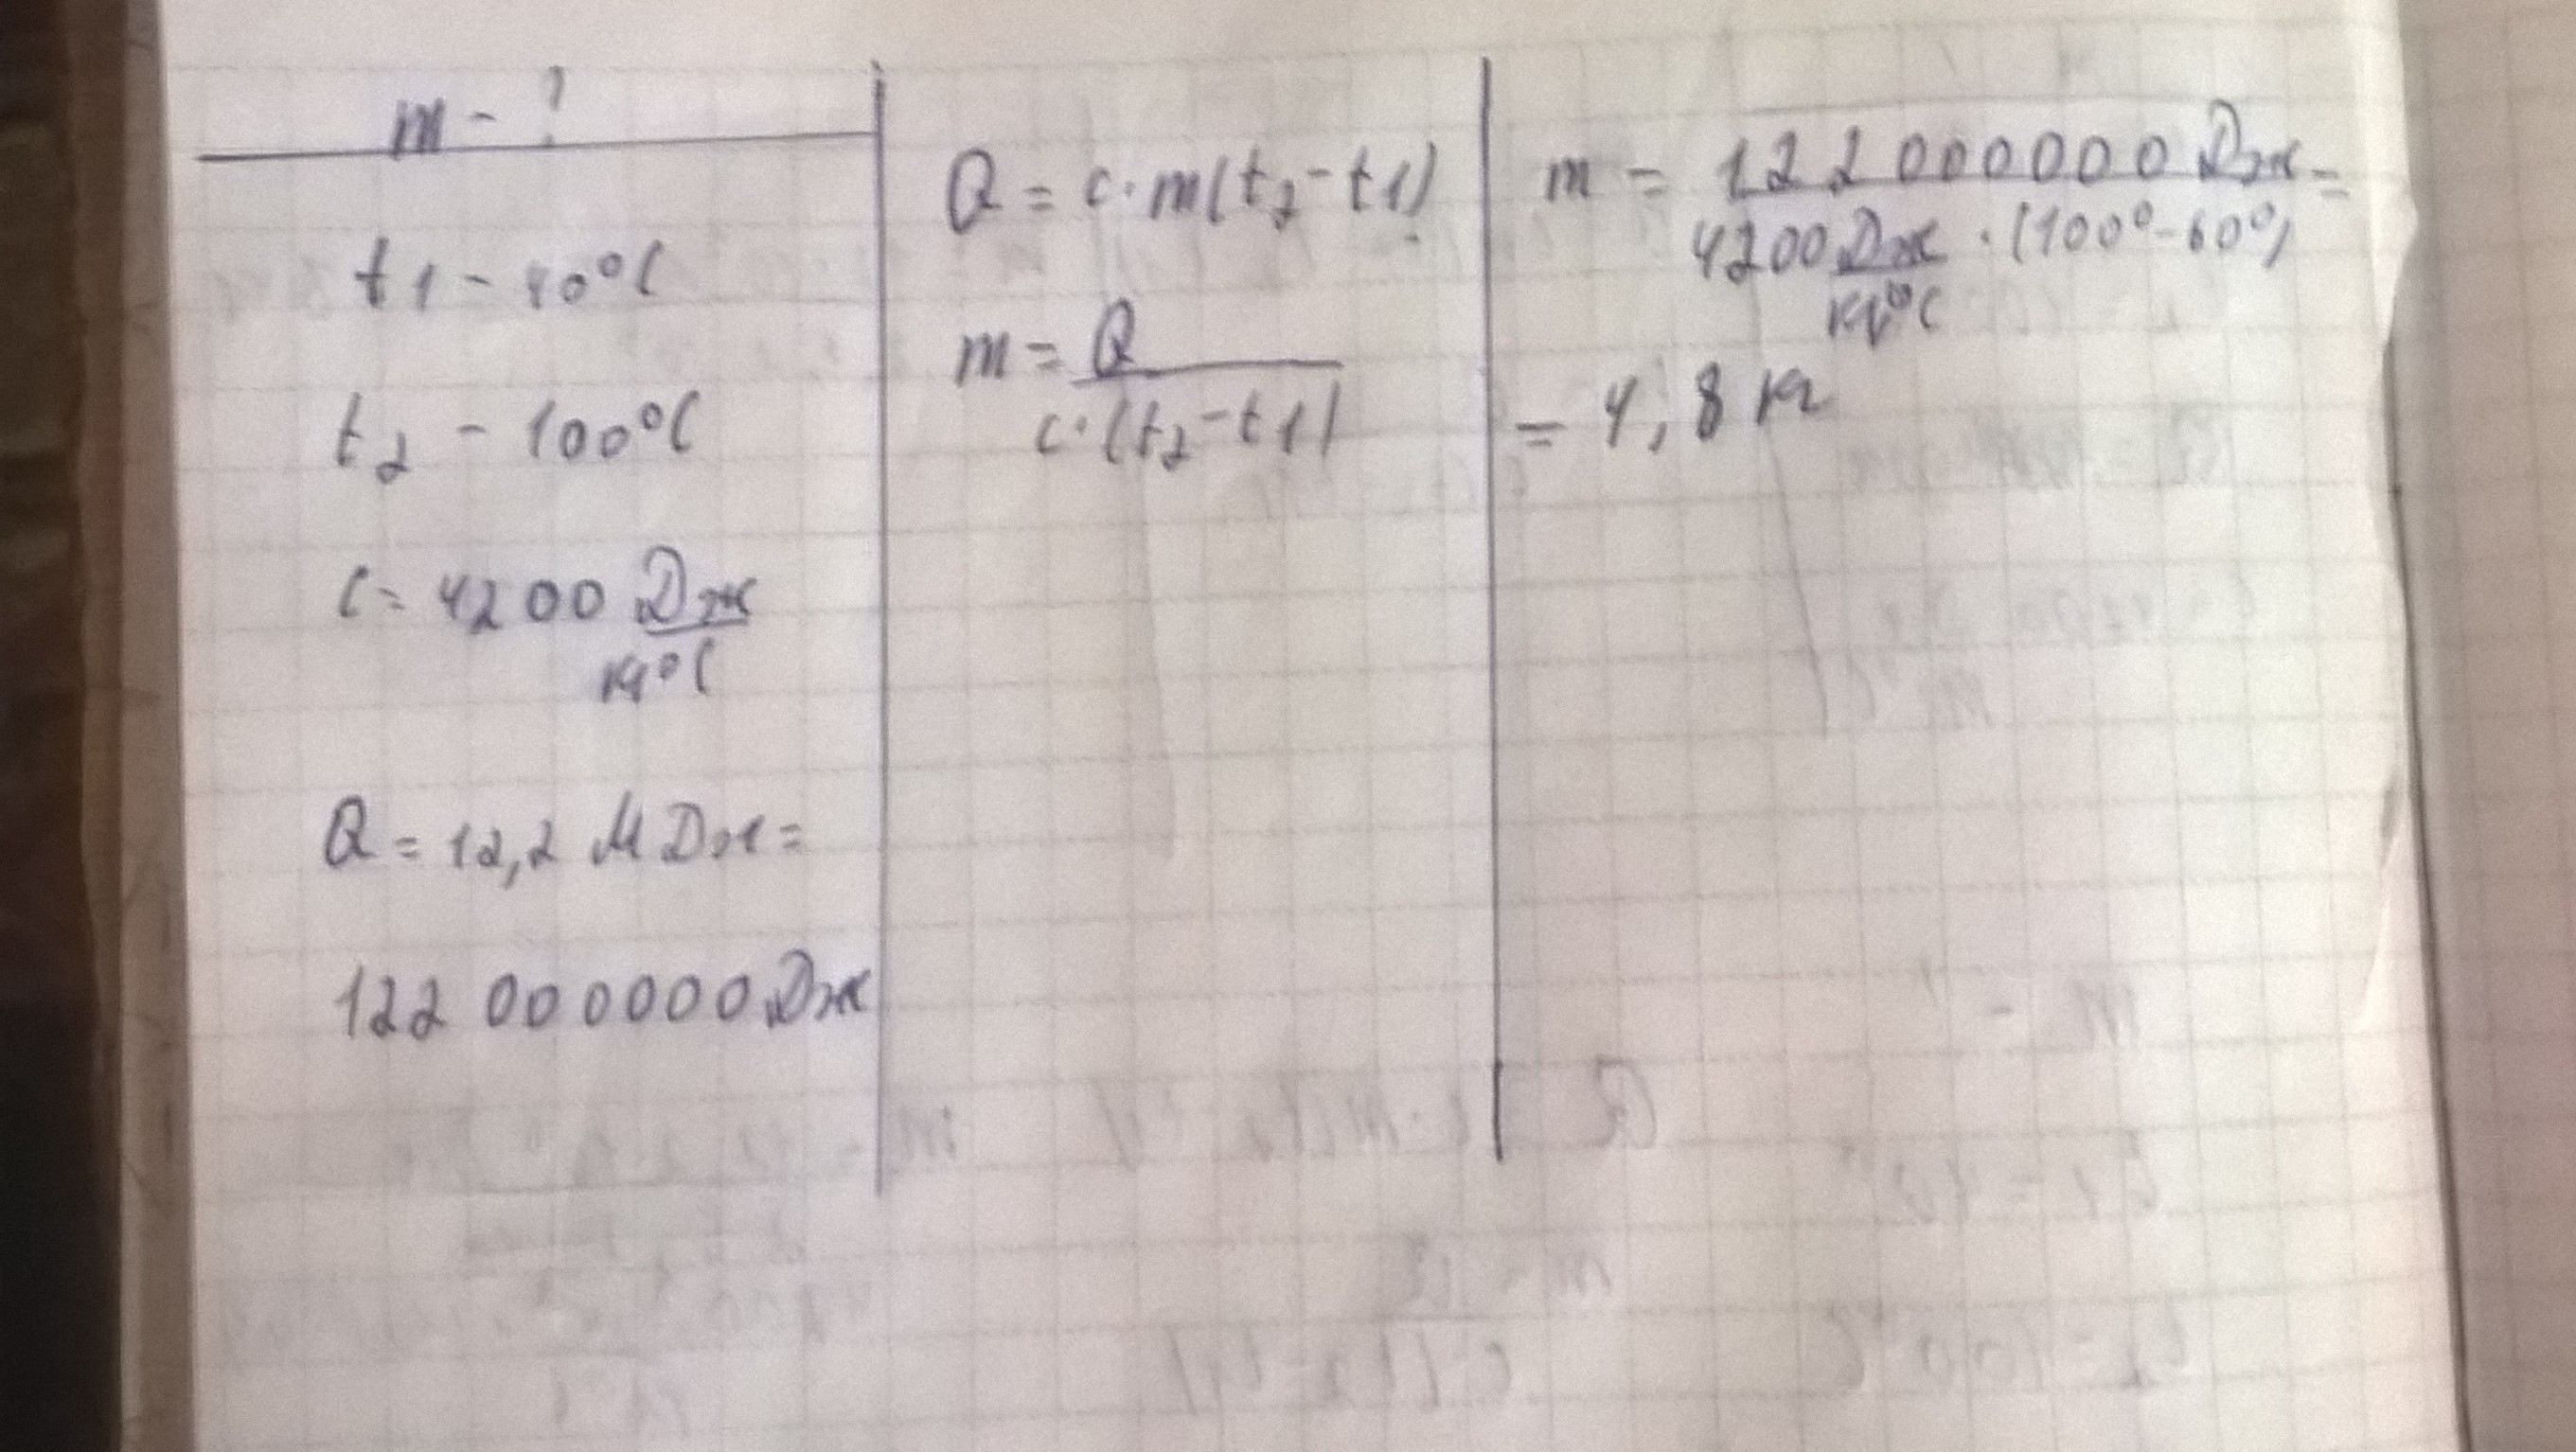 m - ?
t1 - 40°C
t2 - 100°C
c = 4200 Дж
кг°C
Q = 12,2 МДж =
122 000000 Дж
Q = c·m(t2-t1)
m = Q
c·(t2-t1)
m = 122 000000 Дж =
4200 Дж · (100°-60°)
кг°C
= 4,8 кг